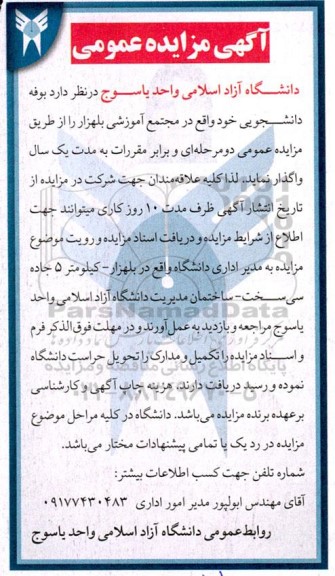 آگهی مزایده عمومی
دانشگاه آزاد اسلامی واحد یاسوج درنظر دارد بوفه
دانشجویی خود واقع در مجتمع آموزشی بلهزار را از طریق
مزایده عمومی دومرحله‌ای و برابر مقررات به مدت یک سال
واگذار نماید. لذا کلیه علاقه‌مندان جهت شرکت در مزایده از
تاریخ انتشار آگهی ظرف مدت ۱۰ روز کاری میتوانند جهت
اطلاع از شرایط مزایده و دریافت اسناد مزایده و رویت موضوع
مزایده به مدیر اداری دانشگاه واقع در بلهزار-کیلومتر ۵ جاده
سی‌سخت-ساختمان مدیریت دانشگاه آزاد اسلامی واحد
یاسوج مراجعه و بازدید به عمل آورند و در مهلت فوق‌الذکر فرم
و اسناد مزایده را تکمیل و مدارک را تحویل حراست دانشگاه
نموده و رسید دریافت دارند. هزینه چاپ آگهی و کارشناسی
برعهده برنده مزایده می‌باشد. دانشگاه در کلیه مراحل موضوع
مزایده در رد یک یا تمامی پیشنهادات مختار می‌باشد.
شماره تلفن جهت کسب اطلاعات بیشتر:
آقای مهندس ابولپور مدیر امور اداری ۰۹۱۷۷۴۳۰۴۸۳
روابط‌عمومی دانشگاه آزاد اسلامی واحد یاسوج
ParsNamadData